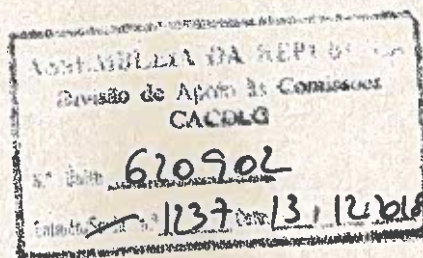 ASSEMBLEIA DA REPÚBLICA
Divisão de Apoio às Comissões
CACDLG
N.º Único 620902
Entrada/Saída n.º 1237 Data 13/12/2018